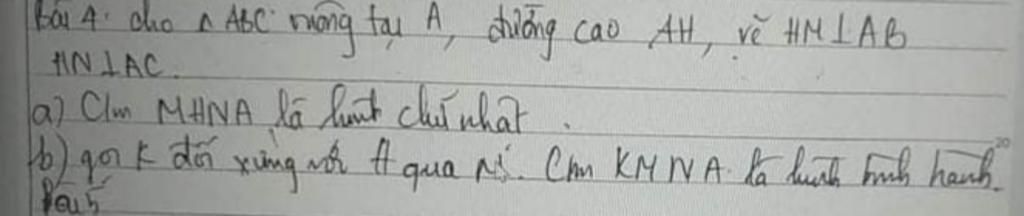 Bài 4: cho △ ABC vuông tại A, đường cao AH, vẽ HM⊥AB
HN⊥AC.
a) Cm MHNA là hình chữ nhật.
b) gọi K đối xứng với H qua M. Cm KMNA là hình bình hành.
Bài 5